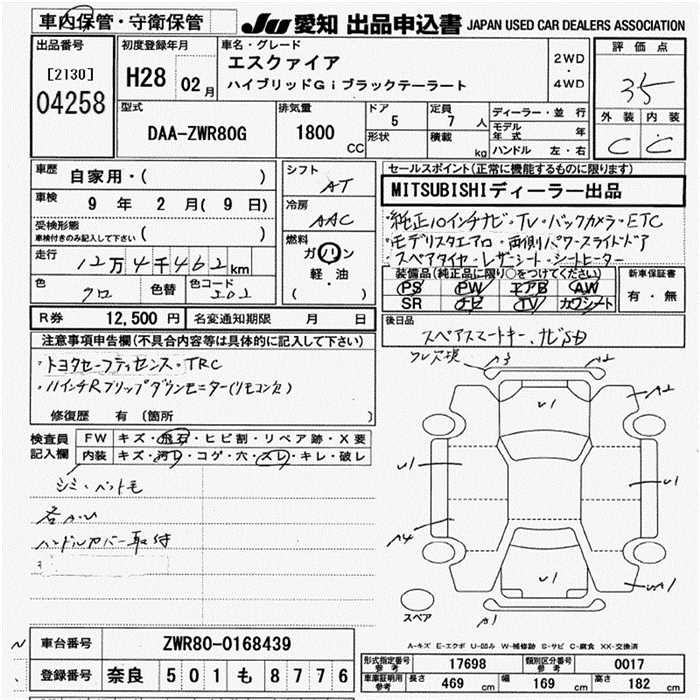 車内保管・守衛保管
JU 愛知 出品申込書 JAPAN USED CAR DEALERS ASSOCIATION
出品番号
[2130]
04258
初度登録年月
H28 02月
車名・グレード
エスクァイア
ハイブリッドGiブラックテーラート
2WD
・
4WD
評価点
35
外装 内装
C C
型式
DAA-ZWR80G
排気量
1800 CC
ドア
5
形状
定員
7 人
積載 kg
ディーラー・並行
モデル年式 年
ハンドル 左・右
車歴
自家用・( )
車検
9 年 2 月 ( 9 日)
受検形態
車検付きのみ記入して下さい ( )
走行
12万4千462km
色
クロ
色替
色コード
202
シフト
AT
冷房
AAC
燃料
ガソリン
軽・油
( )
R券 12,500 円 名変通知期限 月 日
セールスポイント(正常に機能するものに限ります)
MITSUBISHIディーラー出品
・純正10インチナビ・TV・バックカメラ・ETC
・モデリスタエアロ・両側パワースライドドア
・スペアタイヤ・レザーシート・シートヒーター
装備品(純正品に限り○をつけてください)
PS PW エアB AW
SR ナビ TV カワシート
新車保証書
有・無
後日品
スペアスマートキー、ナビSD
注意事項申告欄(不具合内容等は具体的に記入して下さい)
・トヨタセーフティセンス・TRC
・11インチRフリップダウンモニター(リモコン欠)
修復歴 有 (箇所 )
検査員記入欄
FW キズ・飛石・ヒビ割・リペア跡・X要
内装 キズ・汚レ・コゲ・穴・スレ・キレ・破レ
シミ・ペット毛
ハンドルカバー取付
A3 A2
U1 A2
U1 U1
A4
U1
A1
スペア
A-キズ E-エクボ U-凹み W-補修跡 S-サビ C-腐食 XX-交換済
車台番号 ZWR80-0168439
登録番号 奈良 501 も 8776
形式指定番号 参考 17698 類別区分番号 参考 0017
車庫証明用 参考 長さ 469 cm 幅 169 cm 高さ 182 cm